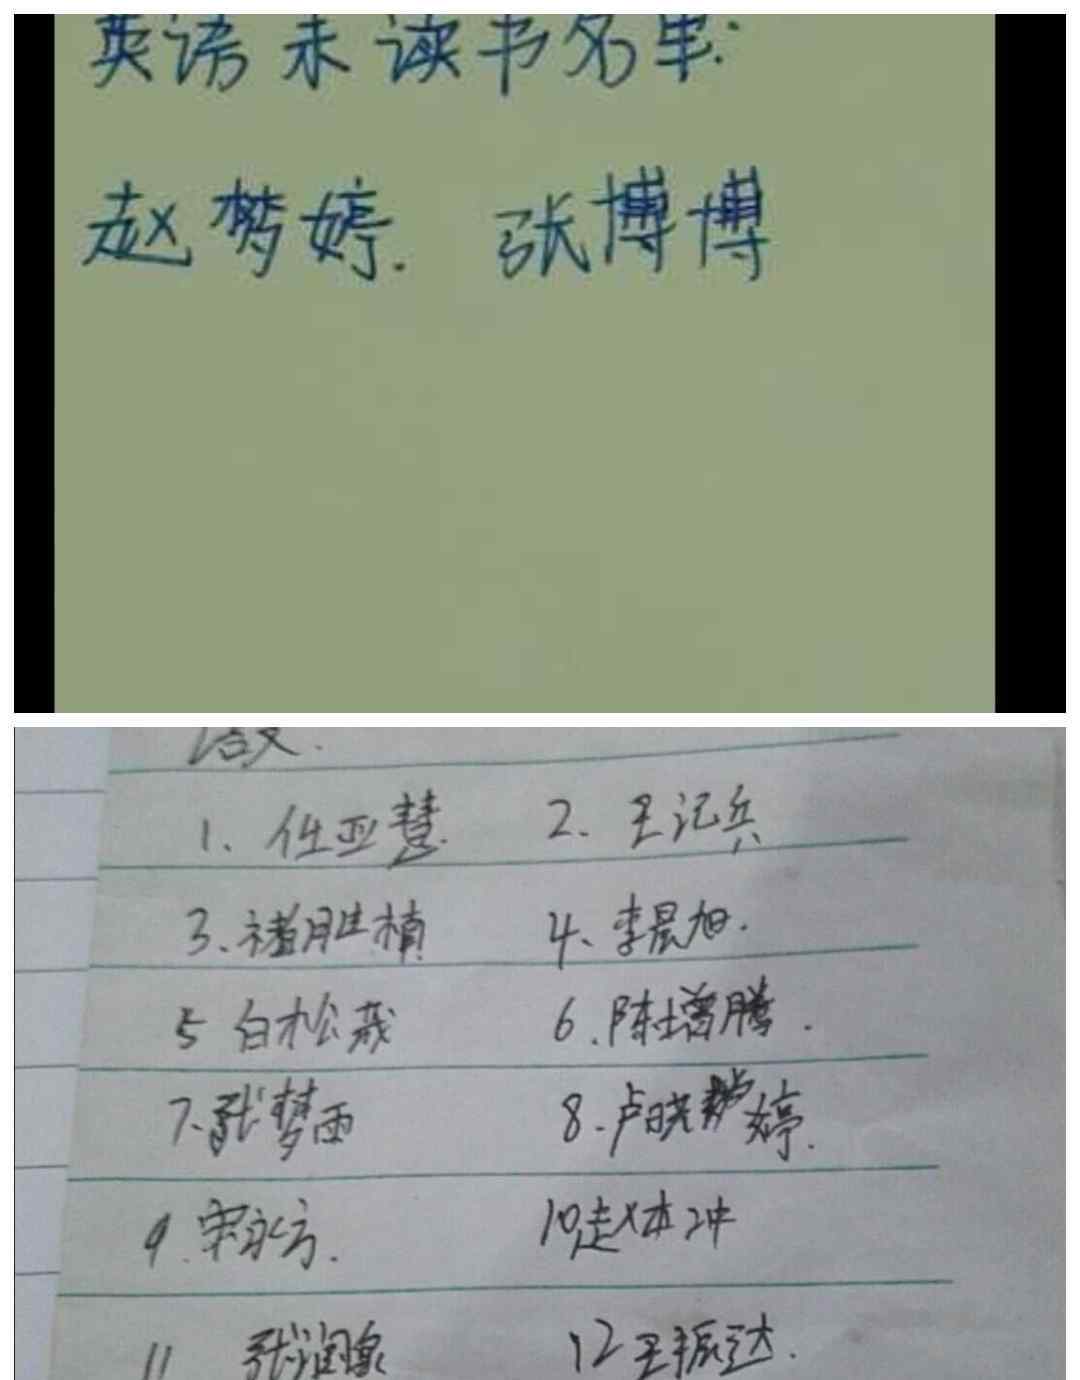 英语未读书名单:
赵梦婷. 张博博
语文.
1、任亚慧. 2、王记兵
3、褚胜楠 4、李晨旭.
5 白松茂 6.陈增腾.
7、张梦雨 8.卢晓婷.
9.宋永方. 10赵本冲
11 张润泉 12王振达.